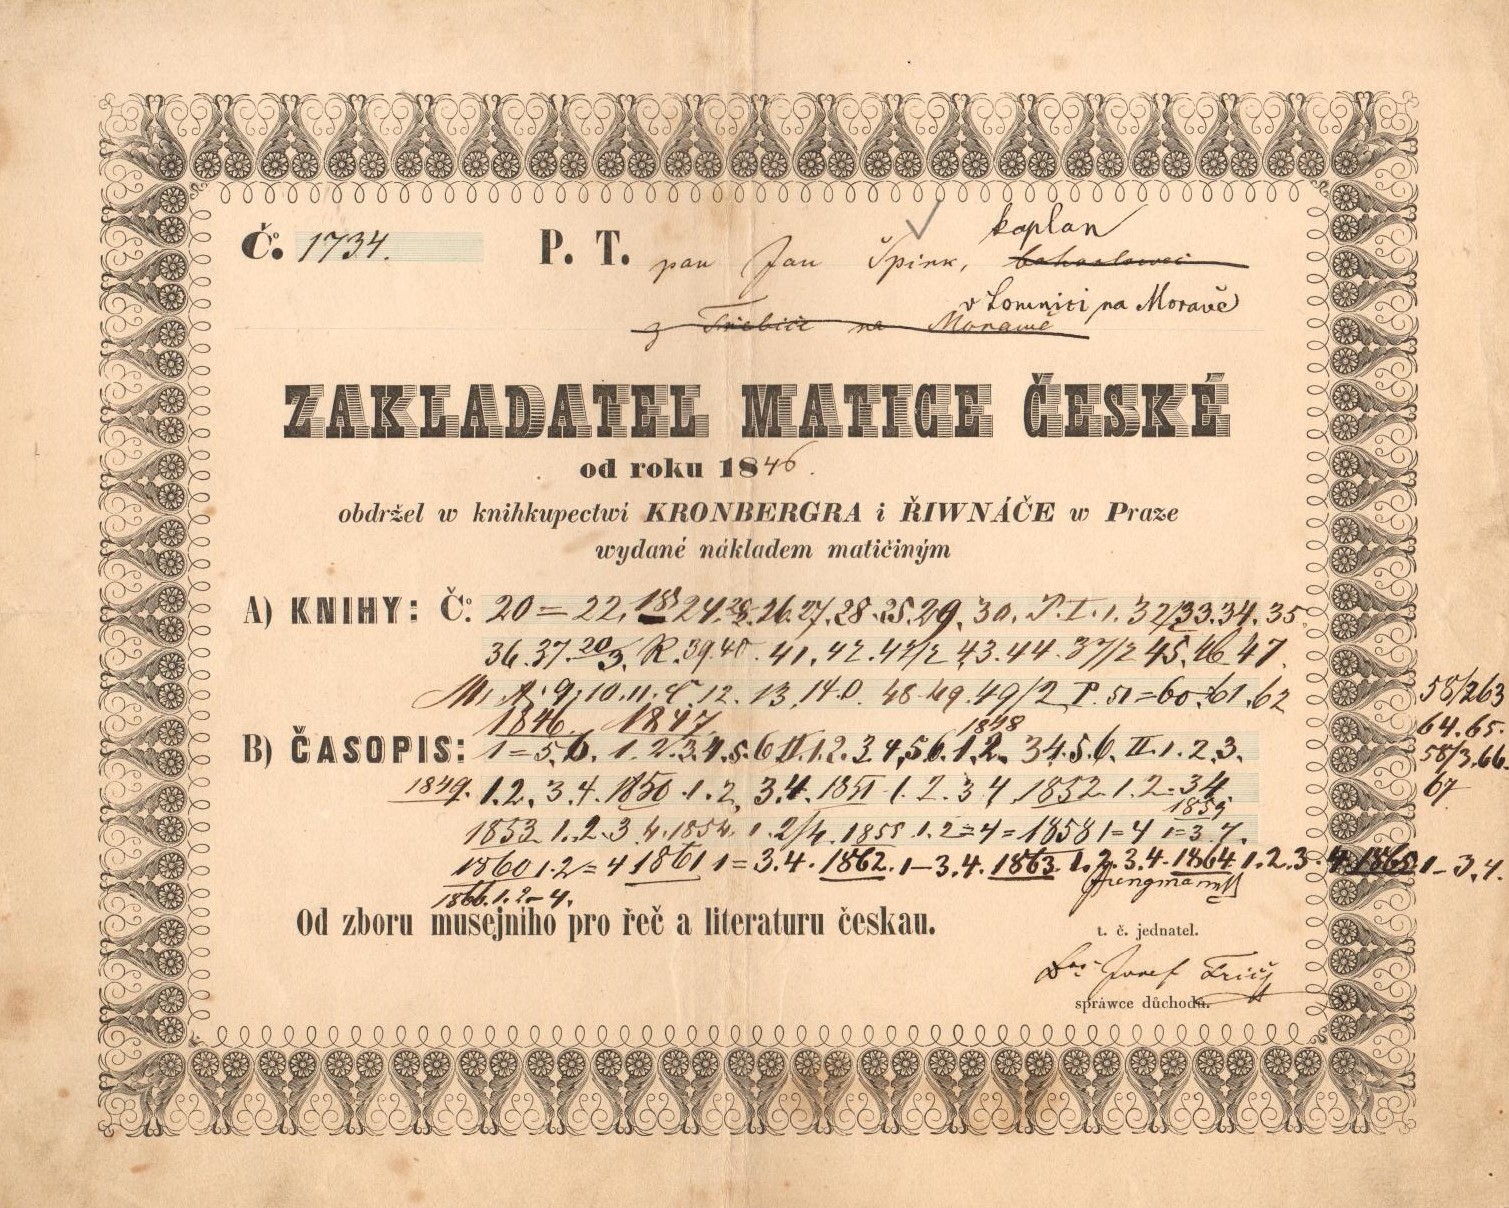 Č. 1734. P. T. pan Jan Špink, bohoslovec kaplan
z Třebíče na Morawě v Lomnici na Moravě
ZAKLADATEL MATICE ČESKÉ
od roku 1846.
obdržel w knihkupectwí KRONBERGRA i ŘIWNÁČE w Praze
wydané nákladem matičiným
A) KNIHY: Č. 20 = 22. 24. 26. 27. 28. 25. 29. 30. P. I. 1. 32/33. 34. 35.
36. 37. 20/3. R. 39. 40. 41. 42. 42/2 43. 44. 37/2 45. 46 47.
9. 10. 11. C. 12. 13. 14. D. 48 49. 49/2 P. 51 = 60. 61. 62
58/2 63
64. 65.
58/3. 66.
67
1846. 1847. 1848
B) ČASOPIS: 1 = 5. 6. 1. 2. 3. 4. 5. 6 II. 1. 2. 3 4. 5 6. 1. 2. 3 4. 5. 6. II. 1. 2. 3.
1849. 1. 2. 3. 4. 1850 1. 2. 3. 4. 1851 1. 2. 3 4 1852 1. 2. 3 4.
1853 1. 2. 3. 4. 1854. 1. 2/4. 1855 1. 2 = 4 = 1858 1 = 4 1859 1 = 3 4.
1860 1. 2 = 4 1861 1 = 3. 4. 1862. 1 – 3. 4. 1863 1. 2. 3. 4. 1864 1. 2. 3. 4. 1865 1 – 3. 4.
1866. 1. 2 – 4.
Jungmann
Od zboru musejního pro řeč a literaturu českau.
t. č. jednatel.
Dor Josef Frič
spráwce důchodů.